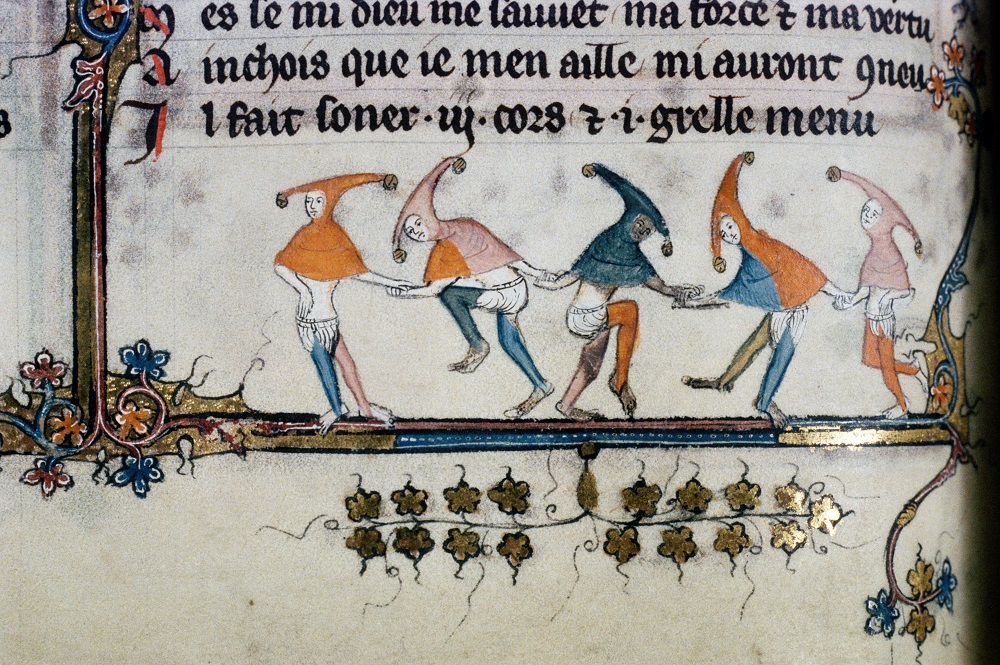 es se mi dieu me sauuet ma force ⁊ ma vertu
A inchois que ie men aille mi auront 9neu
I l fait soner · iij · cors ⁊ · i · grelle menu
s